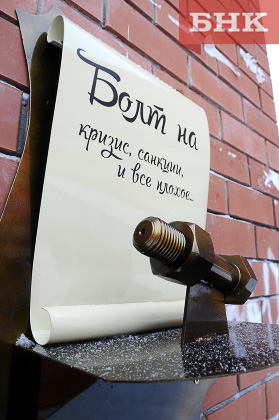 БНК
Болт на
кризис, санкции,
и все плохое...